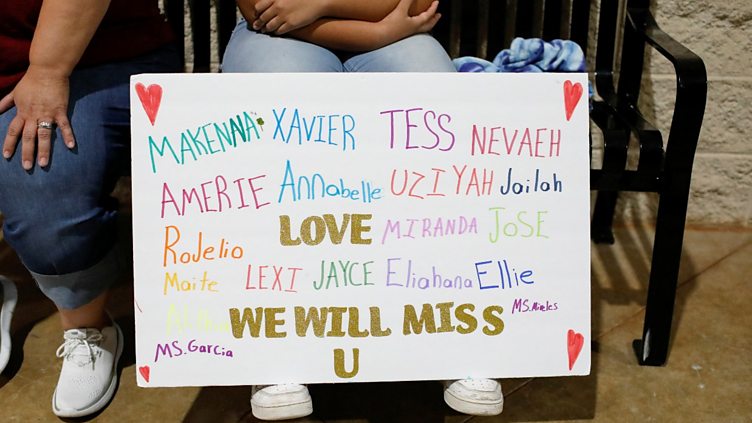 MAKENNA XAVIER TESS NEVAEH
AMERIE Annabelle UZIYAH Jailah
LOVE MIRANDA JOSE
RoJelio
Maite LEXI JAYCE Eliahana Ellie
WE WILL MISS MS. Mireles
MS. Garcia U